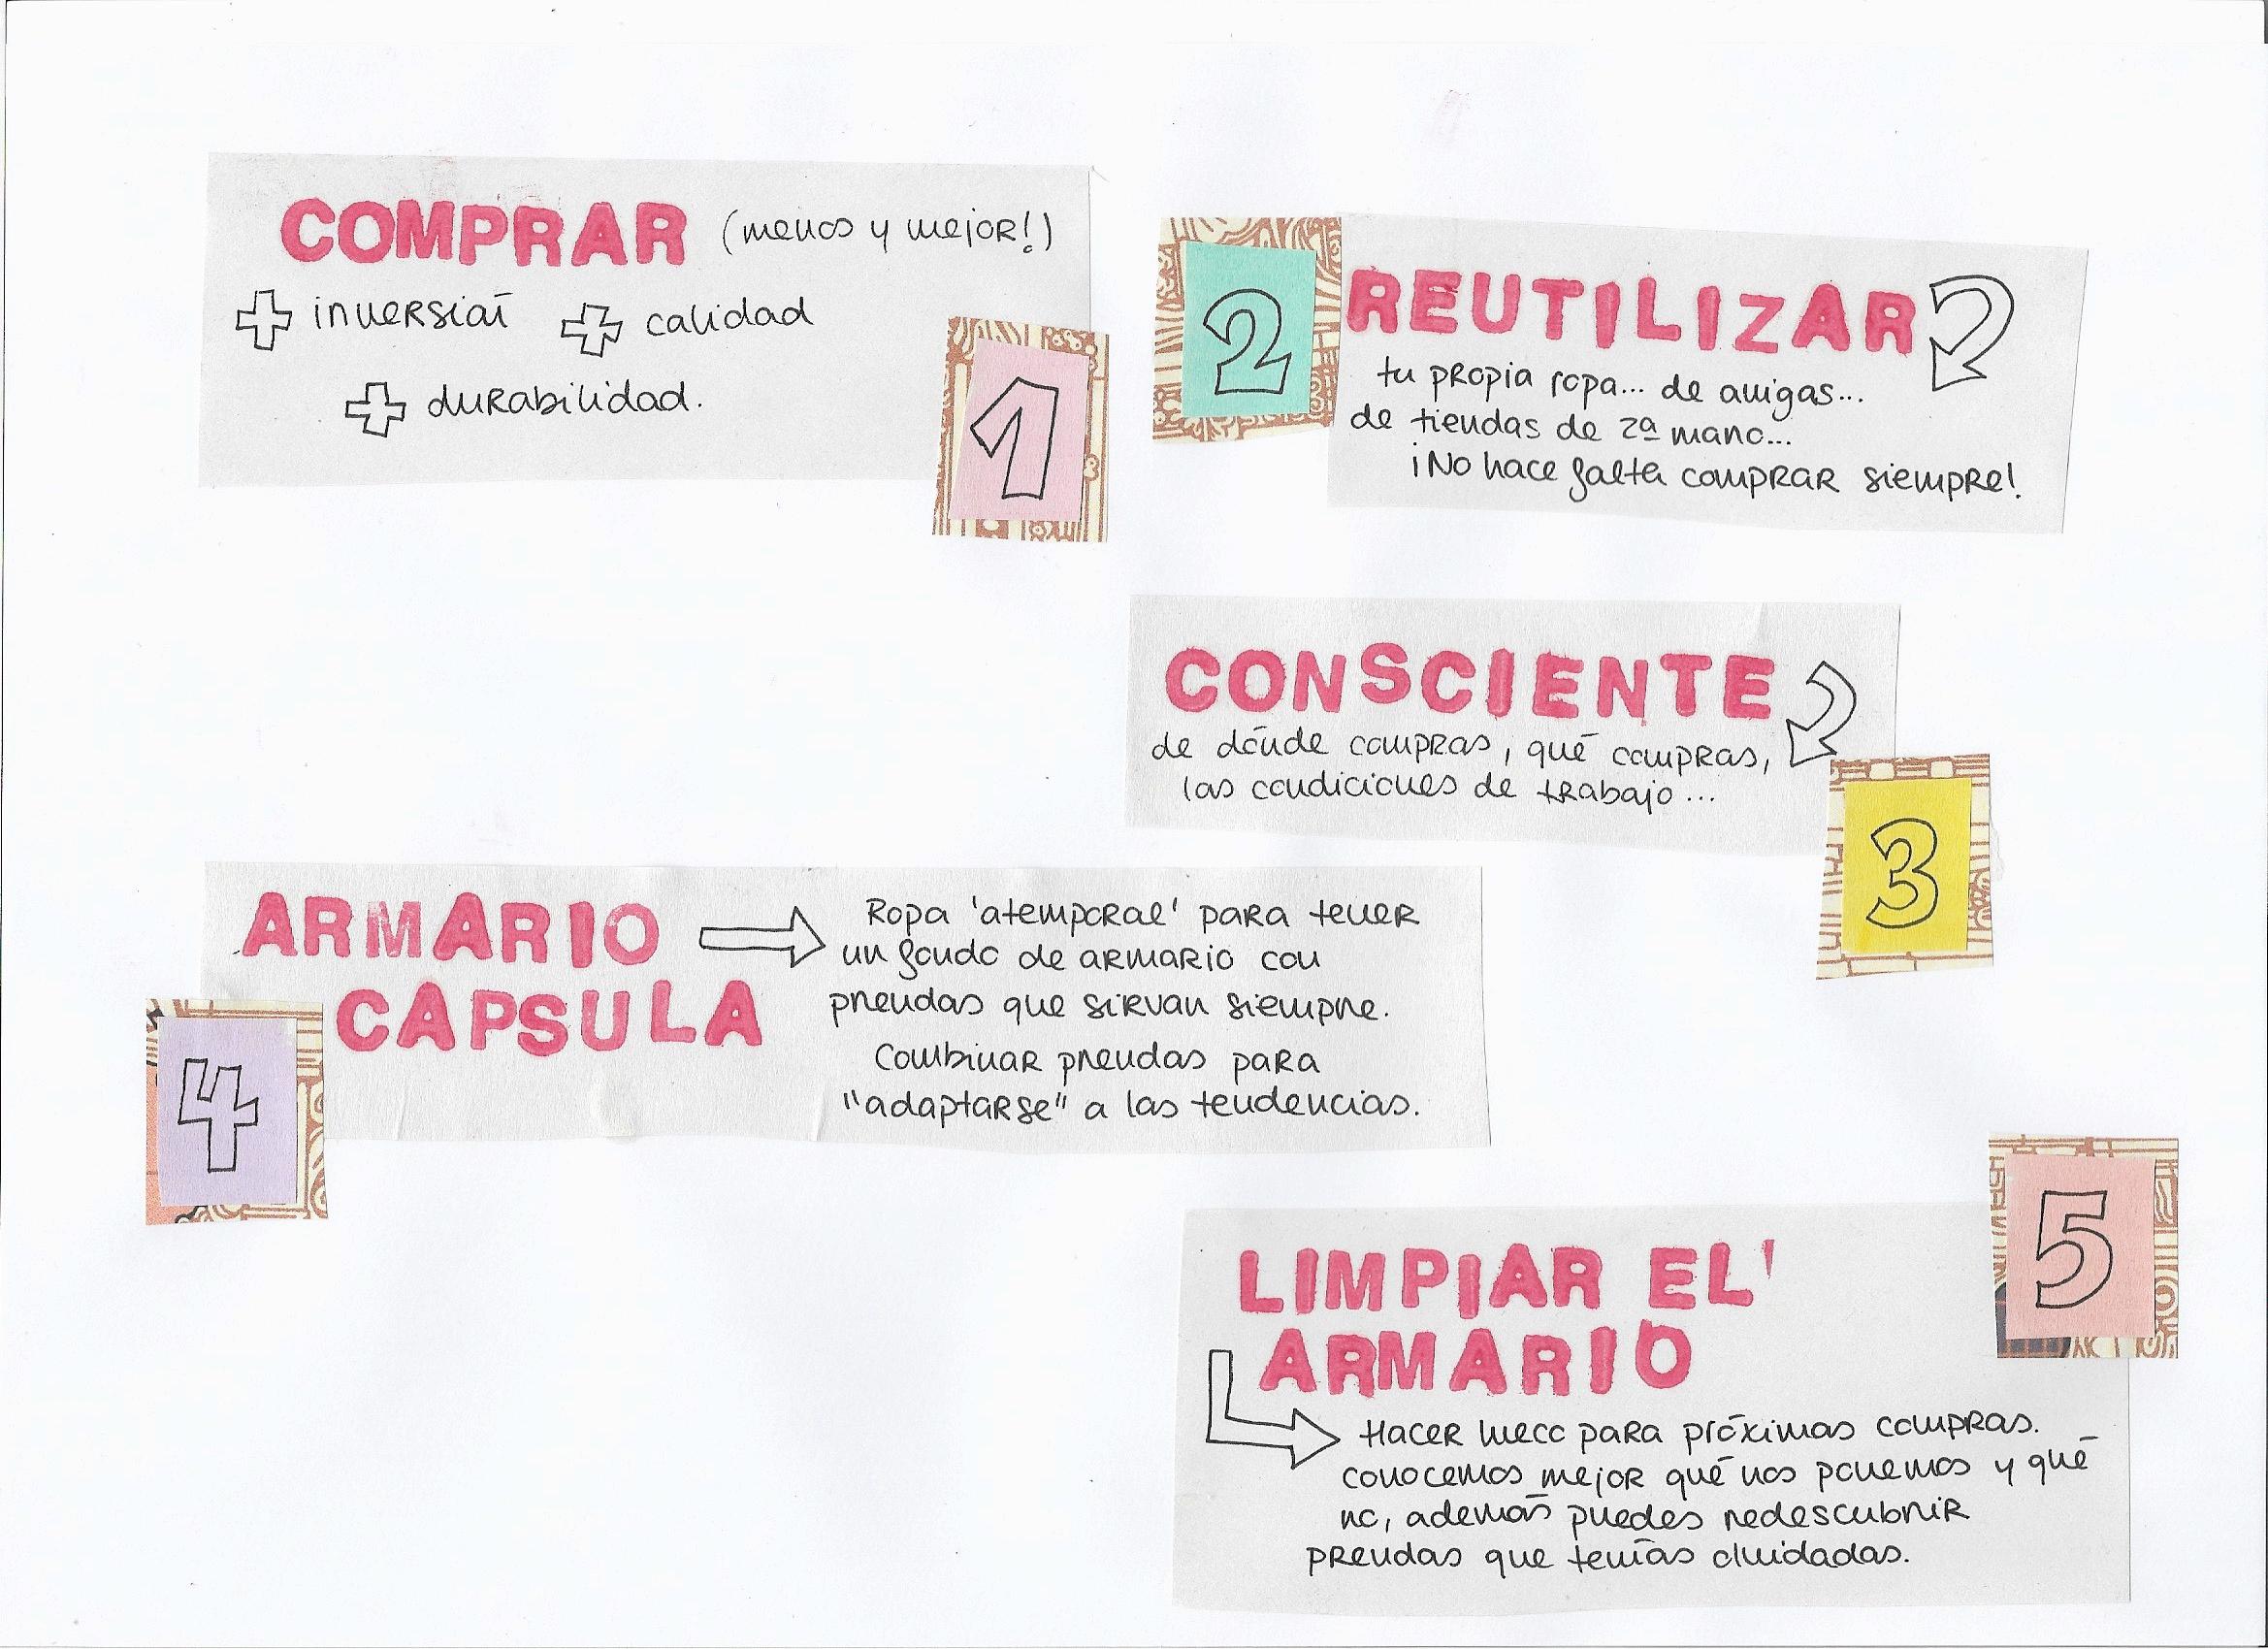 COMPRAR (menos y mejor!)
+ inversión + calidad
+ durabilidad.
1
2
REUTILIZAR
tu propia ropa... de amigas...
de tiendas de 2ª mano...
¡No hace falta comprar siempre!
CONSCIENTE
de dónde compras, qué compras,
las condiciones de trabajo...
3
ARMARIO
CAPSULA
Ropa 'atemporal' para tener
un fondo de armario con
prendas que sirvan siempre.
Combinar prendas para
"adaptarse" a las tendencias.
4
5
LIMPIAR EL
ARMARIO
Hacer hueco para próximas compras.
conocemos mejor qué nos ponemos y qué
no, además puedes redescubrir
prendas que tenías olvidadas.